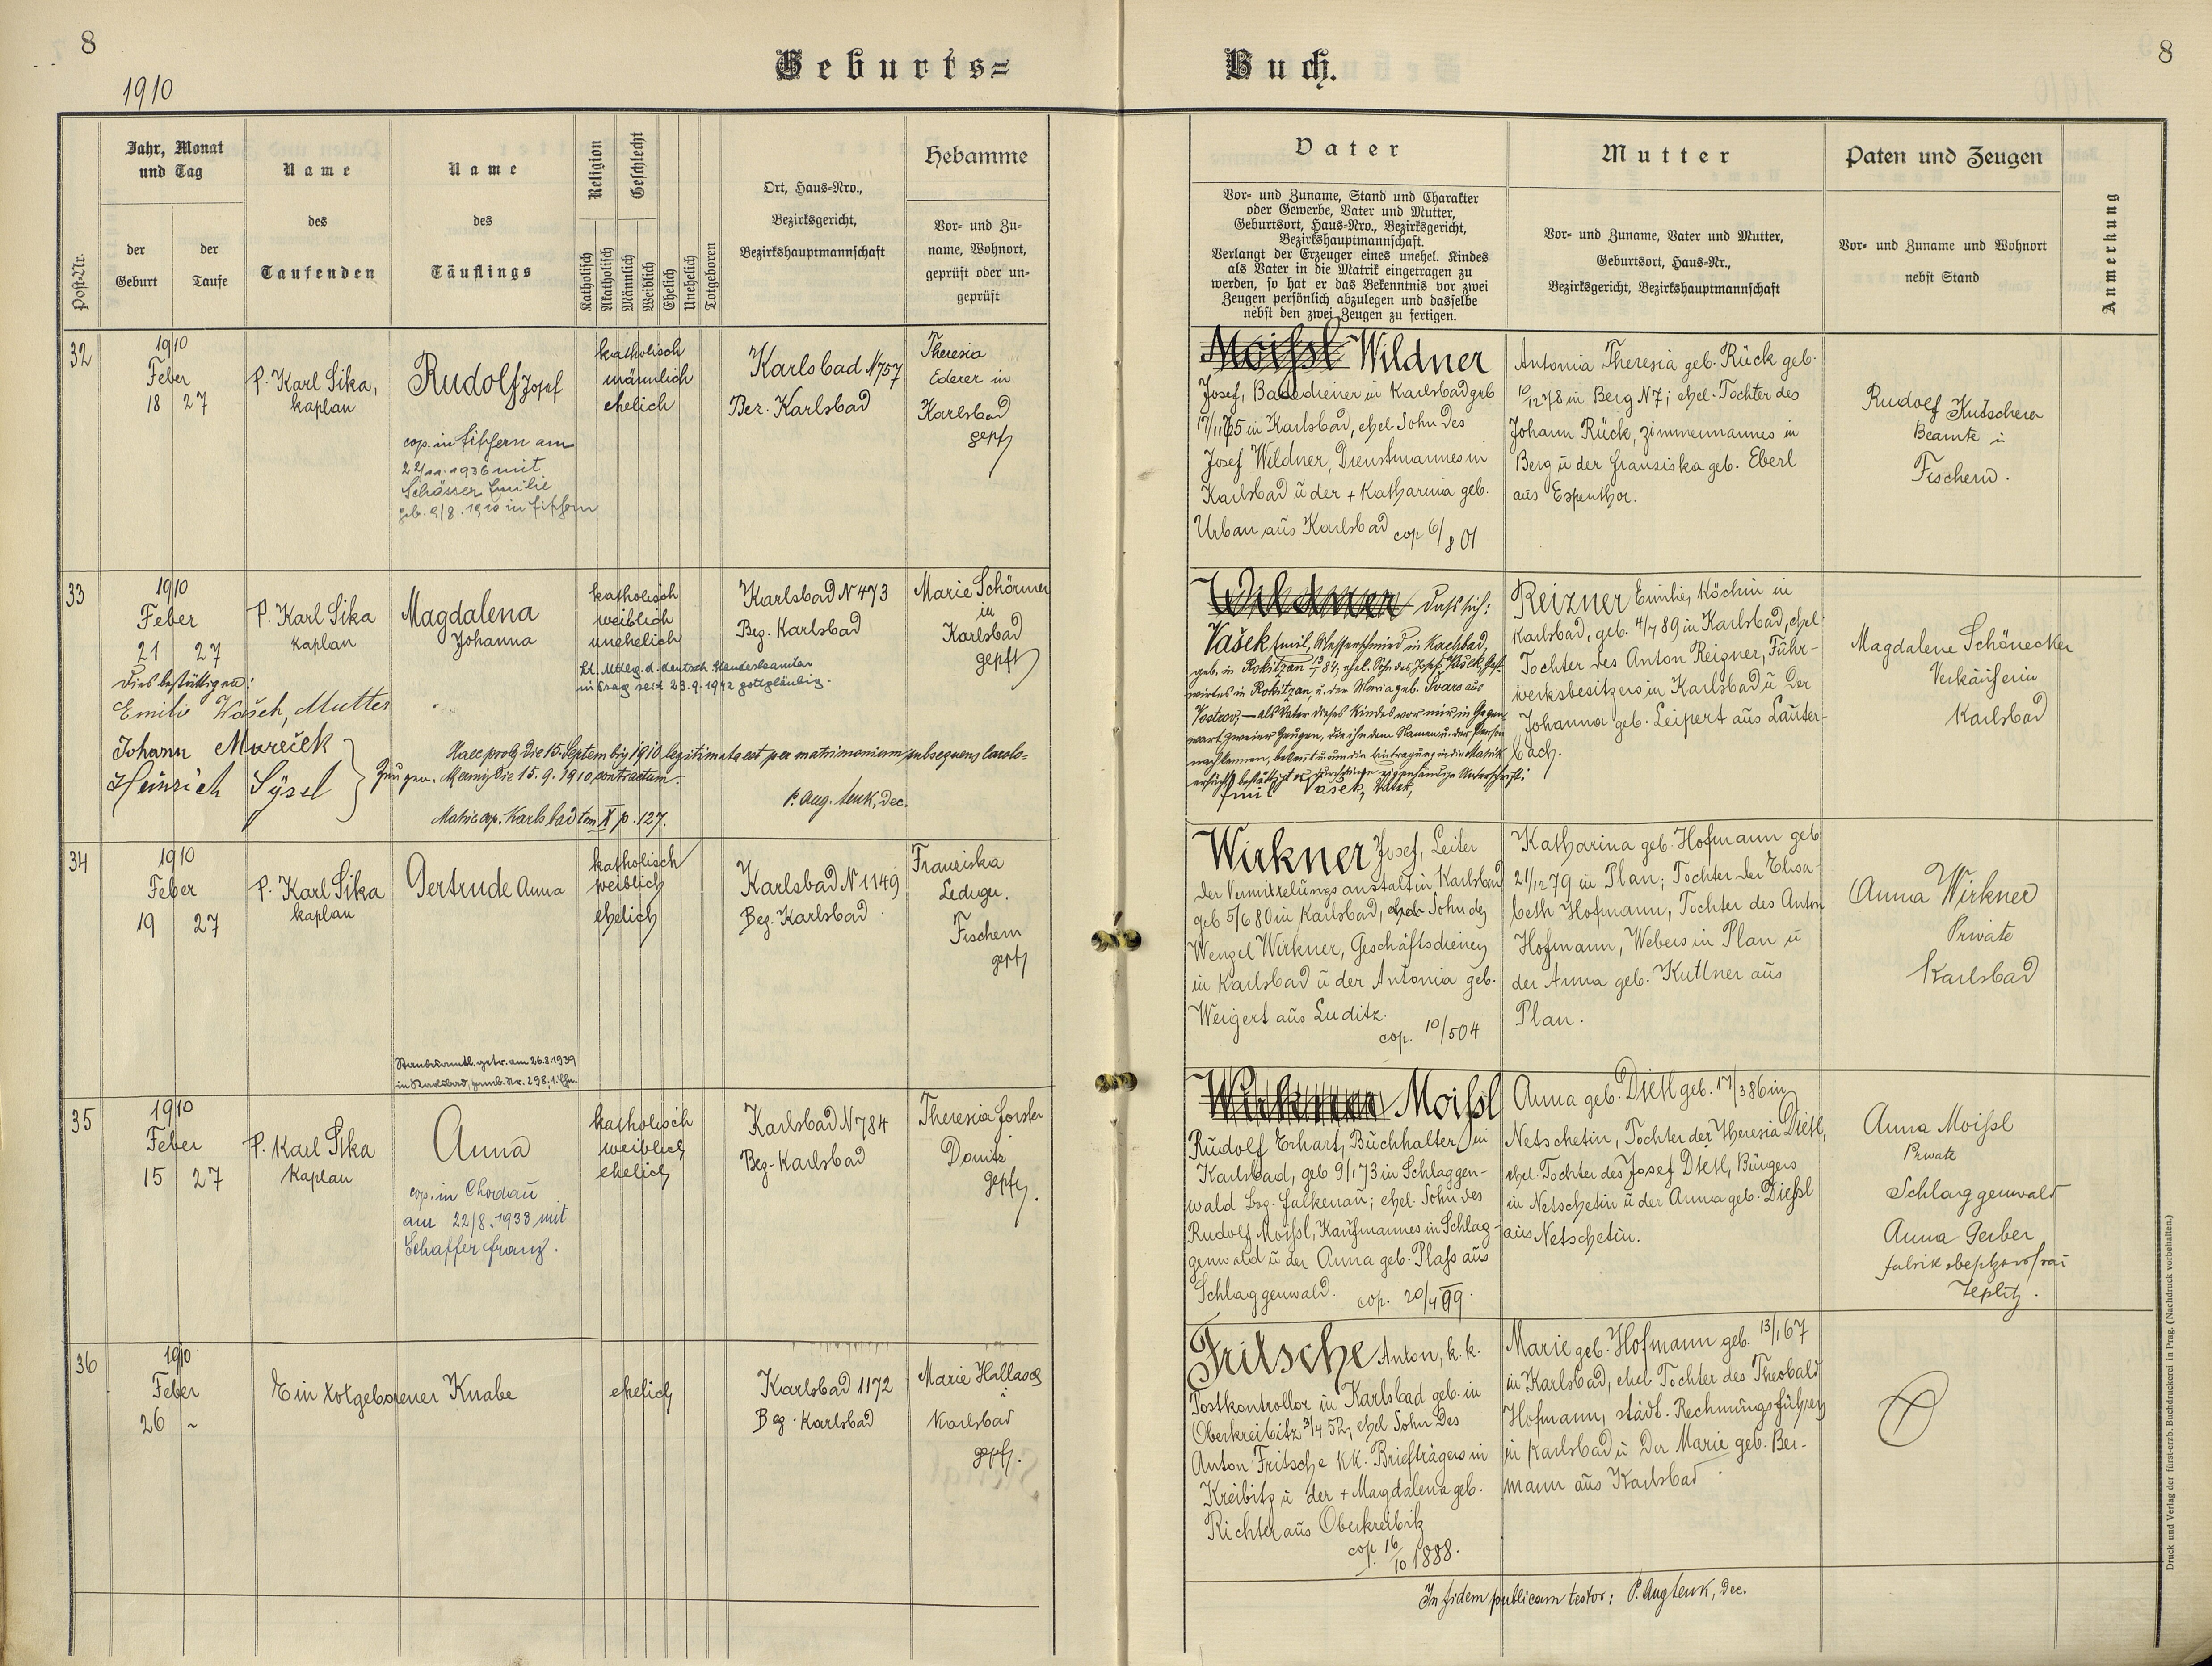 8
1910
Geburts=
Buch.
8
Post-Nr.
Jahr, Monat
und Tag
der
Geburt
der
Taufe
Name
des
Taufenden
Name
des
Täuflings
Religion
Geschlecht
Katholisch
Akatholisch
Männlich
Weiblich
Ehelich
Unehelich
Totgeboren
Ort, Haus-Nro.,
Bezirksgericht,
Bezirkshauptmannschaft
Hebamme
Vor- und Zu-
name, Wohnort,
geprüft oder un-
geprüft
Vater
Vor- und Zuname, Stand und Charakter
oder Gewerbe, Vater und Mutter,
Geburtsort, Haus-Nro., Bezirksgericht,
Bezirkshauptmannschaft.
Verlangt der Erzeuger eines unehel. Kindes
als Vater in die Matrik eingetragen zu
werden, so hat er das Bekenntnis vor zwei
Zeugen persönlich abzulegen und dasselbe
nebst den zwei Zeugen zu fertigen.
Mutter
Vor- und Zuname, Vater und Mutter,
Geburtsort, Haus-Nr.,
Bezirksgericht, Bezirkshauptmannschaft
Paten und Zeugen
Vor- und Zuname und Wohnort
nebst Stand
Anmerkung
32
1910
Feber
18 27
P. Karl Sika,
kaplan
Rudolf Josef
cop. in Fischern am
22/11. 1936 mit
Emilie
geb. 9/8. 1910 in Fischern
katholisch
männlich
ehelich
Karlsbad N 757
Bez. Karlsbad
Theresia
Ederer in
Karlsbad
gepft
Moissl Wildner
Josef, Badediener in Karlsbad geb
in Karlsbad, ehel Sohn des
Josef Wildner, Dienstmannes in
Karlsbad ü der + Katharina geb.
Urban aus Karlsbad cop 6/8 01
Antonia Theresia geb. Rück geb.
10/12 78 in Berg N7; ehel. Tochter des
Johann Rück, Zimmermannes in
Berg ü der Franziska geb. Eberl
aus Espenthor.
Rudolf Kutschera
Beamte in
Fischern.
33
1910
Feber
21 27
P. Karl Sika
kaplan
Magdalena
Johanna
katholisch
weiblich
unehelich
Lt. Mttlg. d. deutsch. Standesamtes
in Prag seit 23.9.1942 gottgläubig.
Karlsbad N 473
Bez. Karlsbad
Marie Schörner
in
Karlsbad
gepft
Dies bestättigen:
Emilie Vašek, Mutter
Johann Mareček
Heinrich Sýsel
Zeugen.
Haec proles die 15. Septembris 1910 legitimata est per matrimonium subsequens
die 15. 9. 1910 contractum.
P. Aug. Lenk, Dec.
Matric. cop. Karlsbad tom X p. 127.
Wildner Dass sich:
Vašek Emil, Messerschmied in Karlsbad,
geb. in Rokitzan 84, ehel. Sohn des Josef Vašek, Gast-
wirtes in Rokitzan, u. der Maria geb. Švarc aus
als Vater dieses Kindes vor mir, in Gegen-
wart zweier Zeugen, die ihn dem Namen u. der Person
nach kennen, bekennt u um die Eintragung in die Matrik
ersucht, bestättigt er durch seine eigenhändige Unterschrift:
Emil Vašek, Vater,
Reizner Emilie, Köchin in
Karlsbad, geb. 4/7 89 in Karlsbad, ehel
Tochter des Anton Reizner, Fuhr-
werksbesitzers in Karlsbad ü der
Johanna geb. Leipert aus Lauter-
bach.
Magdalene Schönecker
Verkäuferin
Karlsbad
34
1910
Feber
19 27
P. Karl Sika
kaplan
Gertrude Anna
Standesamtl. getr. am 26.8.1939
in Karlsbad, Famb. Nr. 298; 1. Ehe.
katholisch
weiblich
ehelich
Karlsbad N 1149
Bez. Karlsbad
Franziska
Lederer.
Fischern
gepft
Wirkner Josef, Leiter
der Vermittelungsanstalt in Karlsbad
geb 5/6 80 in Karlsbad, ehel Sohn des
Wenzel Wirkner, Geschäftsdieners
in Karlsbad ü der Antonia geb.
Weigert aus Luditz.
cop. 10/5 04
Katharina geb. Hofmann geb
21/12 79 in Plan; Tochter der Elisa-
beth Hofmann, Tochter des Anton
Hofmann, Webers in Plan ü
der Anna geb. Kuttner aus
Plan.
Anna Wirkner
Private
Karlsbad
35
1910
Feber
15 27
P. Karl Sika
Kaplan
Anna
cop. in Chodau
am 22/8. 1933 mit
Schaffer Franz.
katholisch
weiblich
ehelich
Karlsbad N 784
Bez. Karlsbad
Theresia Forster
Donitz
gepft.
Wirkner Moissl
Rudolf Erhart, Buchhalter in
Karlsbad, geb 9/1 73 in Schlaggen-
wald Bez. Falkenau; ehel. Sohn des
Rudolf Moissl, Kaufmannes in Schlag-
genwald ü der Anna geb. Plass aus
Schlaggenwald. cop. 20/4 99.
Anna geb. Dietl geb. 17/3 86 in
Netschetin, Tochter der Theresia Dietl,
ehel. Tochter des Josef Dietl, Bürgers
in Netschetin ü der Anna geb. Diessl
aus Netschetin.
Anna Moissl
Private
Schlaggenwald
Anna Gerber
Fabriksbesitzersfrau
Teplitz.
36
1910
Feber
26 ~
Ein totgeborener Knabe
ehelich
Karlsbad 1172
Bez. Karlsbad
Marie Hallasch
Karlsbad
gepft.
Fritsche Anton, k. k.
Postkontrollor in Karlsbad geb. in
Oberkreibitz 3/4 52, ehel Sohn des
Anton Fritsche kk. Briefträgers in
Kreibitz ü der + Magdalena geb.
Richter aus Oberkreibitz
cop. 16/10 1888.
Marie geb. Hofmann geb. 13/1 67
in Karlsbad, ehel Tochter des Theobald
Hofmann, städt. Rechnungsführers
in Karlsbad ü der Marie geb. Ber-
mann aus Karlsbad
In fidem publicam testor: P. Aug Lenk, Dec.
Druck und Verlag der fürst-erzb. Buchdruckerei in Prag. (Nachdruck vorbehalten.)